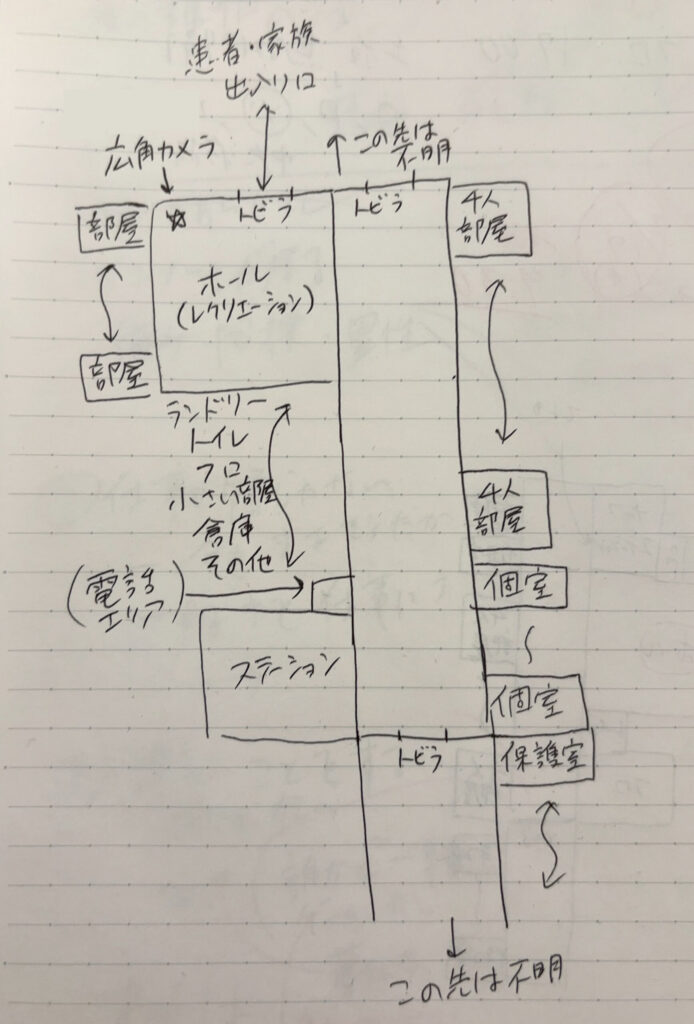 患者・家族
出入り口
広角カメラ
この先は
不明
トビラ
トビラ
部屋
4人
部屋
ホール
(レクリエーション)
部屋
ランドリー
トイレ
フロ
小さい部屋
倉庫
その他
4人
部屋
(電話
エリア)
個室
ステーション
個室
トビラ
保護室
この先は不明